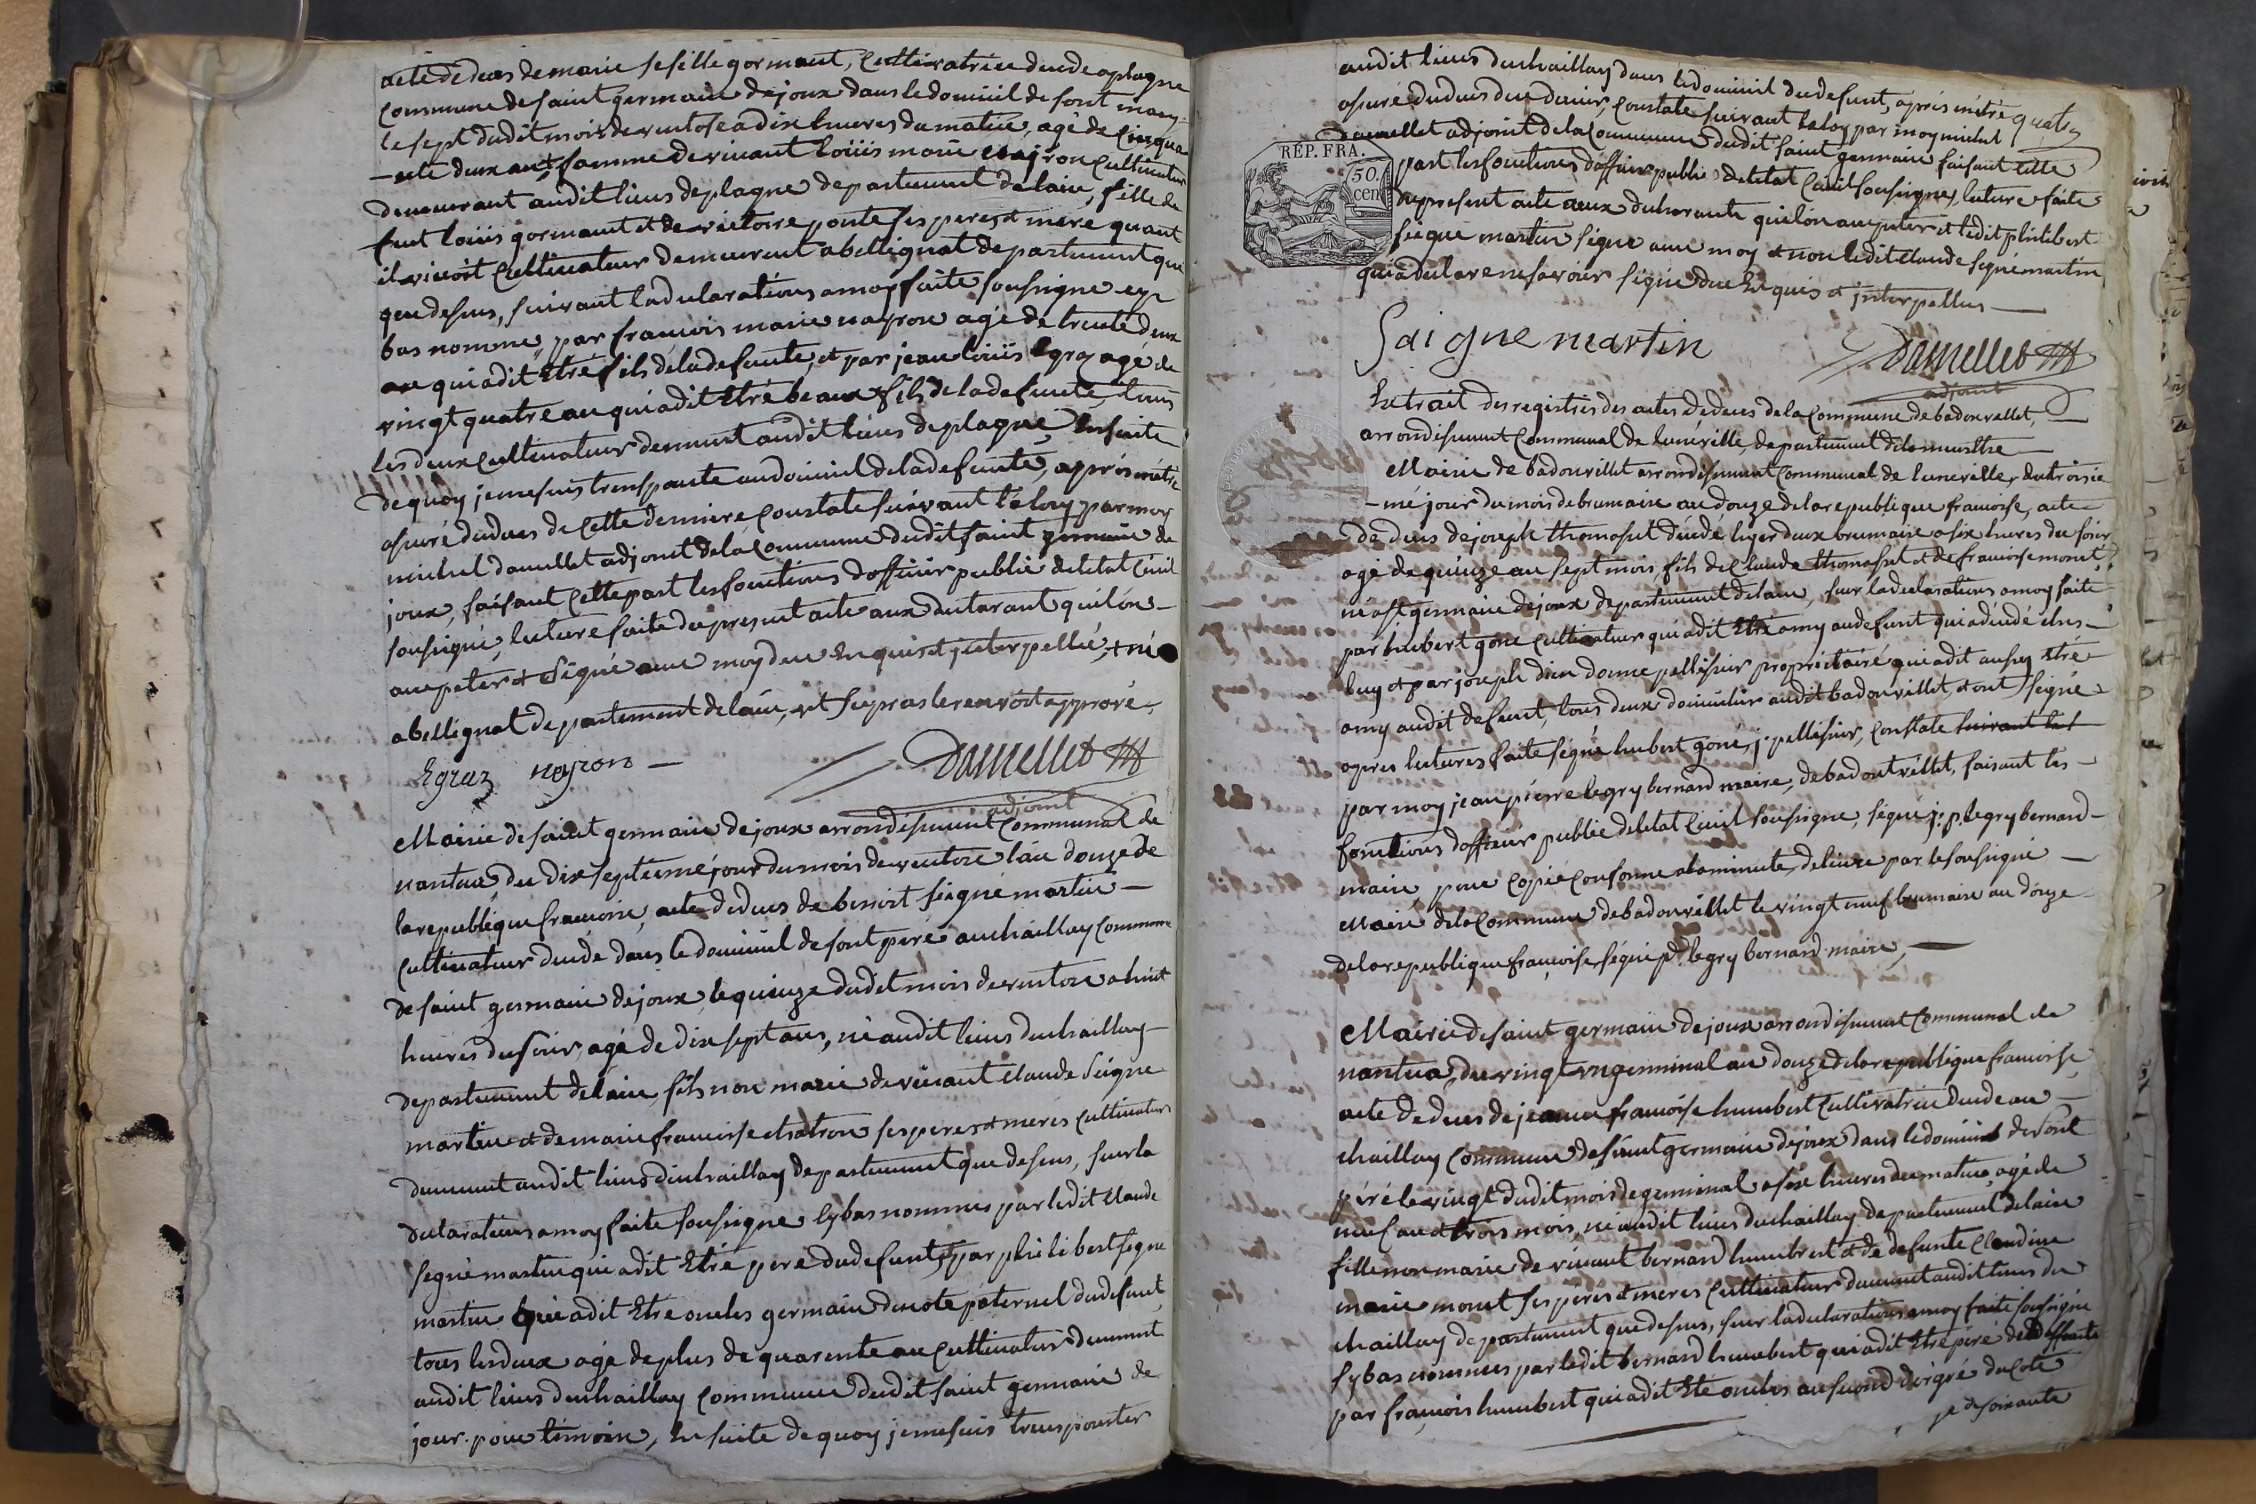 acte de deces de marie sesille gormant, Cultivatrice decede a plagne
Commune de saint germain de joux dans le domicil de sont mary
le sept dudit mois de ventose a dix heures du matin, agé de Cinqua
-nte deux ans, famme de vivant loüis marie nayron Cultivateur
demeurant audit lieus de plagne departement de lain, fille de
feut loüis gormant et de victoire ponte ses peres et mere quant
il vivoit Cultivateur demeurent a bellignat departement que
que desus, suivant la declarations a moy faite sousigne cy
bas nomme, par francois marie nayron agé de trente deux
an qui a dit Etre fils de la defunte, et par jean loüis Egraz agé de
vingt quatre an qui a dit Etré beaux fils de la defunte, tous
les deux Cultivateur demeurt audit lieus de plagne, Ensuite
de quoy je me suis transporté au domicil de la defunte, aprés m'étre
asuré du deces de Cette derniere, Constate suivant la loy par moy
michel damellet adjoint de la Commune dudit saint germain de
joux, faisant Cette part les fonctions d'officier public de letat Civil
sousigné, lecture faite du present acte aux declarant qui l'ons
acepeter et Signé avec moy de ce Enquis et jnterpellié, + né
a bellignat departement de lain, et Sy pras le renvoit apprové
Egraz nayron — Damellet
adjoint
Mairie de saint germain de joux arrondisement Communal de
nantua, du dix septieme jour du mois de ventose l'an douze de
la republique francoise, acte de deces de benoit seigné martin —
Cultivateur decede dans le domicil de sont peré au chaillay Commune
de saint germain de joux, le quinze dudit mois de ventose a huit
heures du soir, agé de dix sept ans, né audit lieus du chaillay
departement de lain, fils non marié de vivant Claude Seigne
martin et de marie francoise chatron ses peres et meres Cultivateurs
demeurent audit lieus du chaillay departement que desus, sur la
declarations a moy faite sousigne Cy bas nommes par ledit Claude
segné martin qui a dit Etré pere du defunt, et par philibert segne
martin qui a dit Etre oncles germain du coté paternel du defunt,
tous les deux agé de plus de quarente an Cultivateur demeurent
audit lieus du chaillay Commune dudit saint germain de
joux. pour témoin, En suite de quoy je me suis transporter
audit lieus du chaillay dans le domicil du defunt, aprés m'étre
asuré du deces du dernier, Constate suivant la loy par moy michel
Damellet adjoint de la Commune dudit saint germain faisant cette
part les fonctions d'officier public de letat Civil sousigne, lecture faite
du present acte aux declarants qui l'on acepeter et ledit philibert
seigne martin signe avec moy et non ledit Claude segné martin
qui a declare ne savoir signé de ce Enquis et jnterpellier —
REP. FRA.
50.
cen
Saigne martin Damellet
adjoint
Extrait des registres des actes de deces de la Commune de badonvellet,
arrondisement Communal de luneville, departement de la meurthe —
Mairie de badonvillet arrondisement Communal de luneville, du troisie
-me jour du mois de brumaire an douze de la republique francoise, acte
de deces de joseph thomaset decede hyer deux brumaire a six heures du soir
agé de quinze an sept mois, fils de Claude thomaset et de francoise monet,
né a st germain de joux departement de lain, sur la declarations a moy faite
par hubert gone Cultivateur qui a dit Etre amy au defunt qui a décédé ches —
luy et par joseph dieu donne pellisier proprietairé qui a dit ausy etré
amy audit defunt, tous deux domicilier audit badonvillet, et ont signé
apres lectures faite signé hubert goné, j. pellisier, Constate suivant la l
par moy jean pierre legry bernard maire, de badontvillet, faisant les —
fonctions d'officier public de letat Civil sousigne, signe j: p. legry bernard
maire, pour Copie Conforme a la minute, delivre par le sousigné —
Maire de la Commune de badonvillet le vingt neuf brumaire an douze
de la republique francoise, signé p. legry bernard maire, —
Mairie de saint germain de joux arrondisement Communal de
nantua, du vingt un germinal an douze de la republique francoise,
acte de deces de jeanne francoise humbert Cultivatrice decede au —
chaillay Commune de saint germain de joux dans le domicil de sont
péré le vingt dudit mois de germinal a six heures du matin, agé de
neuf an et trois mois, né audit lieus du chaillay departement de lain
fille non marié de vivant bernard humbert et de defunte Claudine
marie monet ses peres et meres Cultivateur demeurent audit lieus du
chaillay departement que desus, sur la declarations a moy faite sousigne
Sy bas nommes par ledit bernard humbert qui a dit Etre peré de la deffunte
par francois humbert qui a dit Ete oncles au second degré du coté